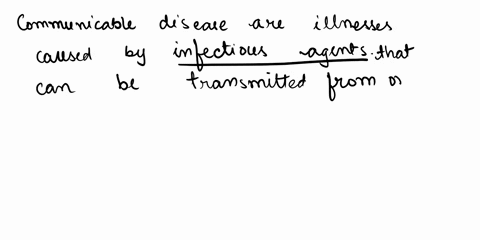 Communicable disease are illnesses
caused by infectious agents. that
can be transmitted from o